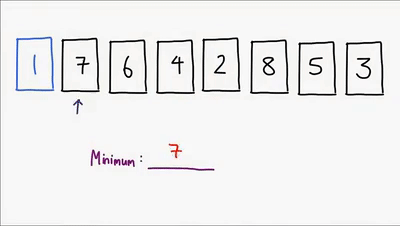 1 7 6 4 2 8 5 3
Minimum: 7